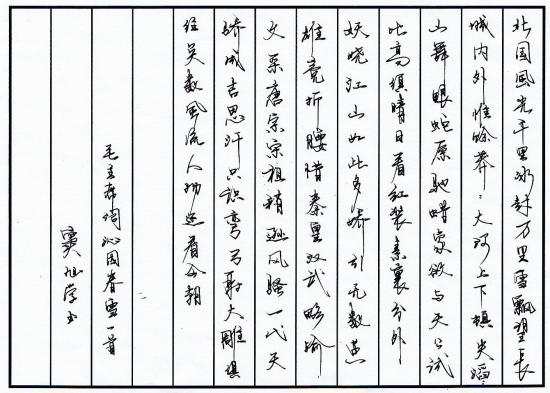 北国風光千里冰封万里雪飘望長
城内外惟餘莽〻大河上下顿失滔〻
山舞银蛇原驰蜡象欲与天公试
比高须晴日看红装素裹分外
妖娆江山如此多娇引无数英
雄竞折腰惜秦皇汉武略输
文采唐宗宋祖稍逊风骚一代天
骄成吉思汗只识弯弓射大雕俱
往矣数風流人物还看今朝
毛主席词沁园春雪一首
窦旭